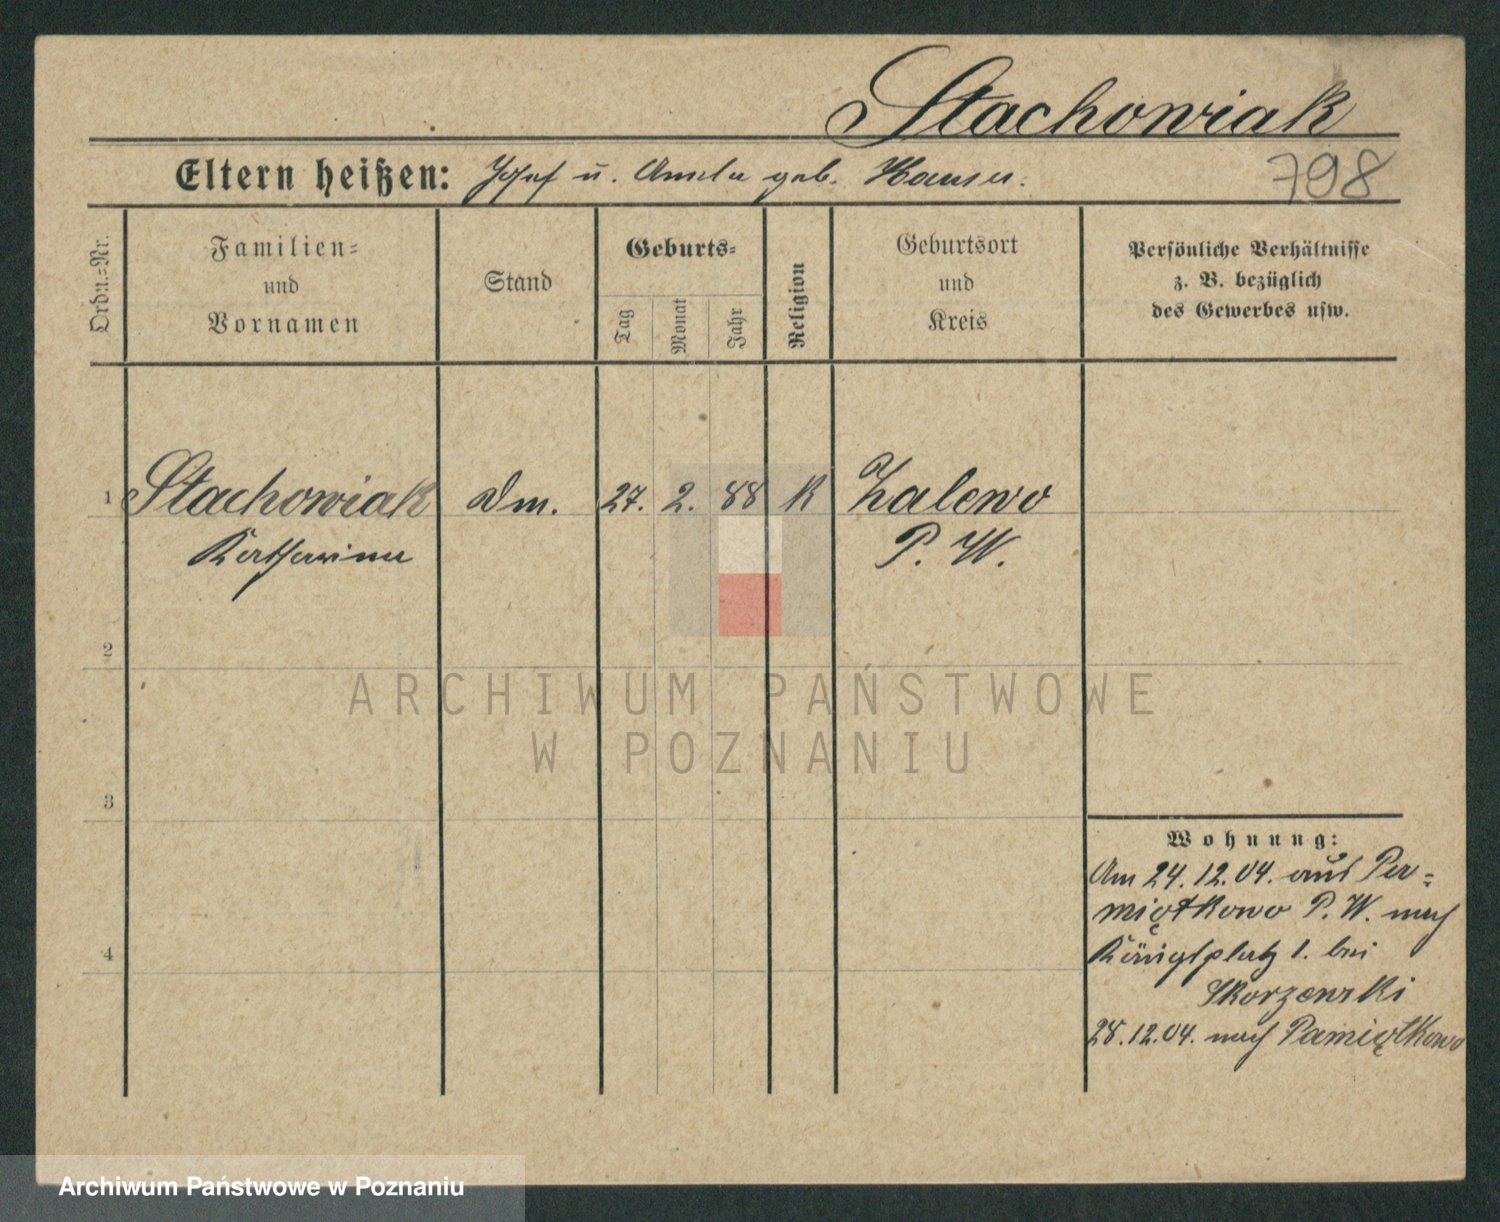 Stachowiak
Eltern heißen: Josef u. Amelie geb. Hauser.
798
Ordn.=Nr.
Familien=
und
Vornamen
Stand
Geburts=
Tag
Monat
Jahr
Religion
Geburtsort
und
Kreis
Persönliche Verhältnisse
z. B. bezüglich
des Gewerbes usw.
1 Stachowiak Dm. 27. 2. 88 K Zalewo
Katharina P. W.
2
ARCHIWUM PAŃSTWOWE
W POZNANIU
3
Wohnung:
Am 24.12.04. aus Pa=
miątkowo P. W. nach
4
Königsplatz 1. bei
Skorzewski
28.12.04. nach Pamiątkowo
Archiwum Państwowe w Poznaniu